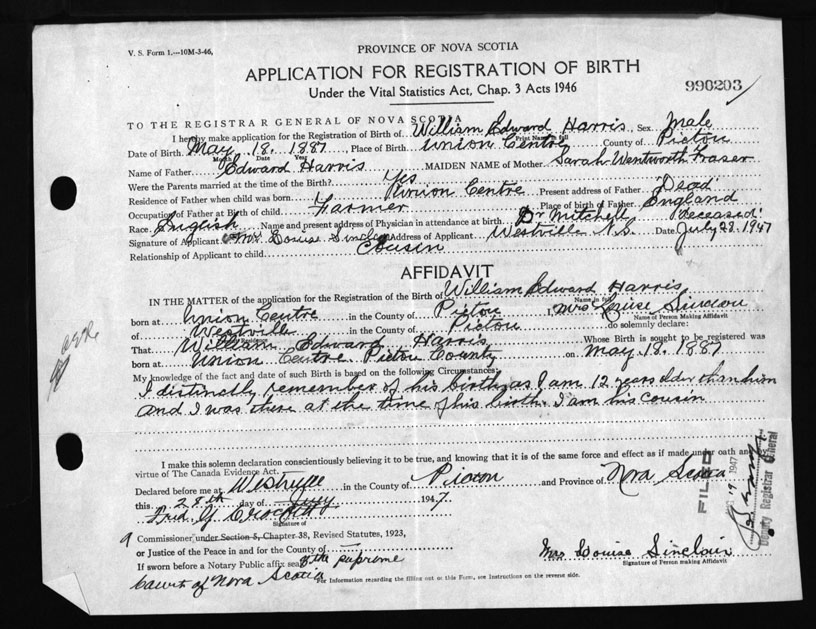 V. S. Form 1.—10M-3-46,
PROVINCE OF NOVA SCOTIA
APPLICATION FOR REGISTRATION OF BIRTH
Under the Vital Statistics Act, Chap. 3 Acts 1946
990203
TO THE REGISTRAR GENERAL OF NOVA SCOTIA
I hereby make application for the Registration of Birth of William Edward Harris, Sex Male
Print Name in full
Date of Birth May 18. 1887 Place of Birth Union Centre County of Pictou
Month Date Year
Name of Father Edward Harris MAIDEN NAME of Mother Sarah Wentworth Fraser
Were the Parents married at the time of the Birth? Yes
Residence of Father when child was born Union Centre Present address of Father "Dead"
Occupation of Father at Birth of child Farmer Place of birth of Father England
Race English Name and present address of Physician in attendance at birth Dr Mitchell "Deceased"
Signature of Applicant Mrs Louise Sinclair Address of Applicant Westville N.S. Date July 28. 1947
Relationship of Applicant to child Cousin
AFFIDAVIT
IN THE MATTER of the application for the Registration of the Birth of William Edward Harris
Name in full
born at Union Centre in the County of Pictou I, Mrs Louise Sinclair
Name of Person Making Affidavit
of Westville in the County of Pictou do solemnly declare:
Residence
That William Edward Harris Whose Birth is sought to be registered was
born at Union Centre Pictou County on May 18. 1887
My knowledge of the fact and date of such Birth is based on the following Circumstances:
I distinctly remember of his birth, as I am 12 years older than him
and I was there at the time of his birth. I am his cousin
I make this solemn declaration conscientiously believing it to be true, and knowing that it is of the same force and effect as if made under oath and
virtue of The Canada Evidence Act.
Declared before me at Westville in the County of Pictou and Province of Nova Scotia
this 28th day of July 1947
Signature of
a Commissioner under Section 5, Chapter 38, Revised Statutes, 1923,
or Justice of the Peace in and for the County of
If sworn before a Notary Public affix seal of the Supreme
Court of Nova Scotia
Mrs Louise Sinclair
Signature of Person making Affidavit
For Information regarding the filling out of this Form, see Instructions on the reverse side.
FILED
1947
Deputy Registrar General